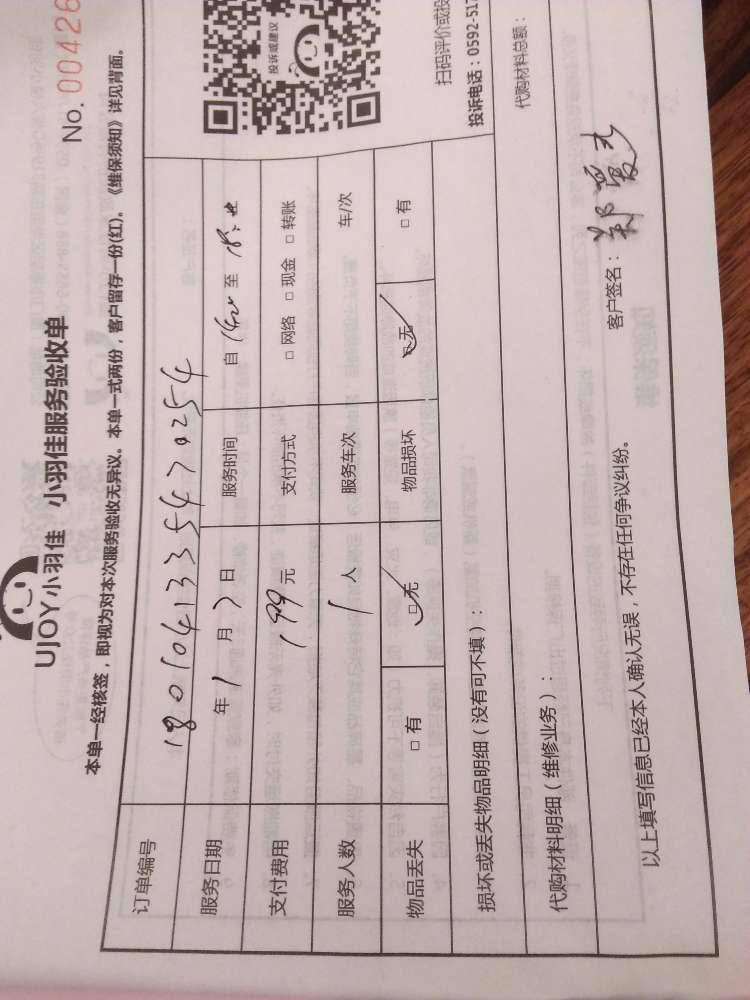 UJOY小羽佳 小羽佳服务验收单
No. 00426
本单一经核签，即视为对本次服务验收无异议。本单一式两份，客户留存一份(红)。《维保须知》详见背面。
订单编号 1801041335470254
服务日期 年 1 月 7 日 服务时间 自 至
支付费用 199 元 支付方式 □ 网络 □ 现金 □ 转账
服务人数 1 人 服务车次 车/次
物品丢失 □ 有 □ 无 物品损坏 □ 无 □ 有
损坏或丢失物品明细（没有可不填）：
代购材料明细（维修业务）：
代购材料总额：
以上填写信息已经本人确认无误，不存在任何争议纠纷。
客户签名：郑爱
投诉或建议
扫码评价或投
投诉电话：0592-517